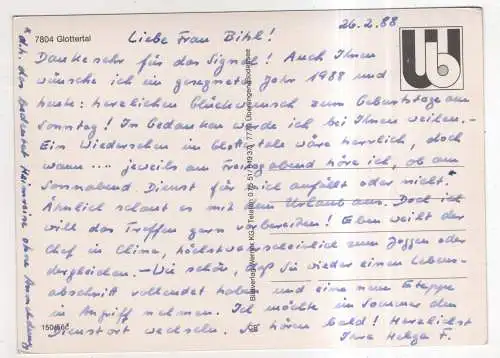 7804 Glottertal
26.2.88
Liebe Frau Bihl!
Danke sehr für das Signal! Auch Ihnen
wünsche ich ein gesegnetes Jahr 1988 und
heute: herzlichen Glückwunsch zum Geburtstage am
Sonntag! In Gedanken werde ich bei Ihnen weilen.-
Ein Wiedersehen im Glottertale wäre herrlich, doch
wann .... jeweils am Freitagabend höre ich, ob am
Sonnabend Dienst für mich anfällt oder nicht.
Ähnlich schaut es mit dem Urlaub aus. Doch ich
will das Treffen gern vorbereiten! Eben weilt der
Chef in China, höchstwahrscheinlich zum Joggen oder
dergleichen. - Wie schön, daß Sie wieder einen Lebens-
abschnitt vollendet haben und eine neue Etappe
in Angriff nehmen. Ich möchte im Sommer den
Dienstort wechseln. Sie hören bald! Herzlichst
Ihre Helga F.
* d.h. das bedeutet Heimreise ohne Anmeldung
150/66